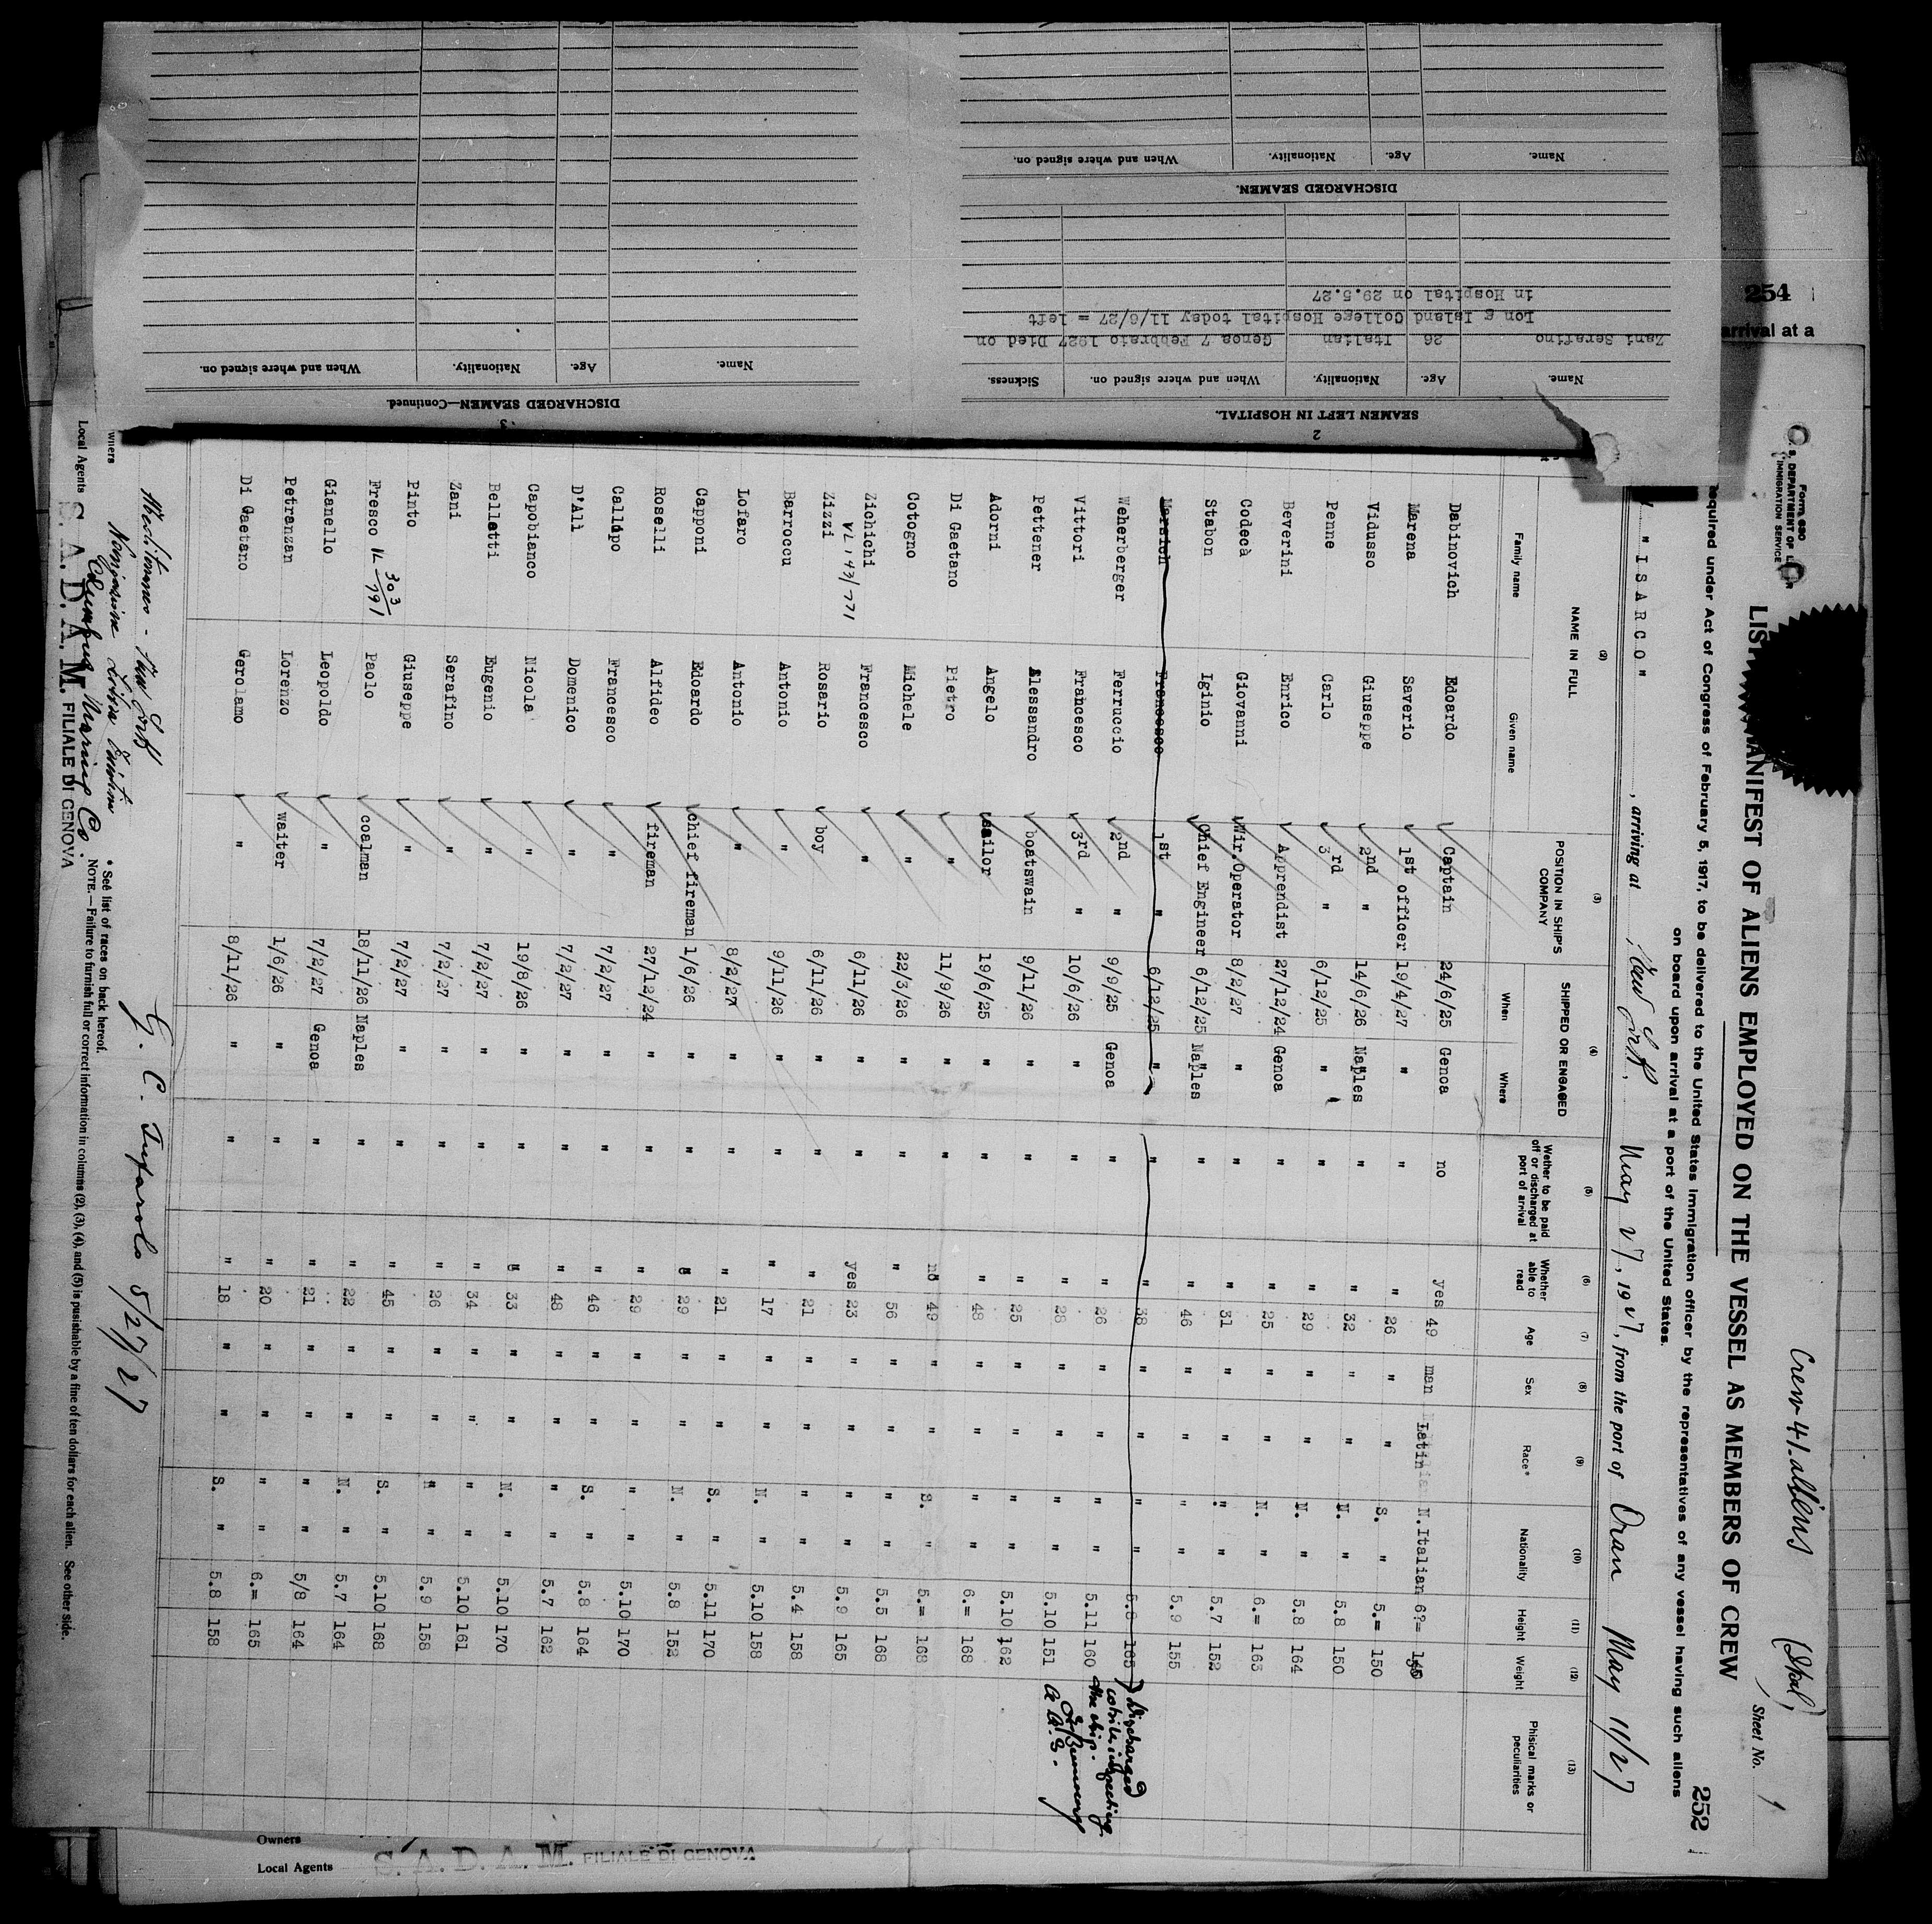 Form 680
U. S. DEPARTMENT OF LABOR
IMMIGRATION SERVICE
Crew 41 aliens (Ital)
Sheet No. 1
LIST MANIFEST OF ALIENS EMPLOYED ON THE VESSEL AS MEMBERS OF CREW
252
equired under Act of Congress of February 5, 1917, to be delivered to the United States immigration officer by the representatives of any vessel having such aliens
on board upon arrival at a port of the United States.
" ISARCO " , arriving at New York, May 27, 1927, from the port of Oran May 11/27
(2) (3) (4) (5) (6) (7) (8) (9) (10) (11) (12) (13)
NAME IN FULL POSITION IN SHIP'S COMPANY SHIPPED OR ENGAGED Wether to be paid off or discharged at port of arrival Whether able to read Age Sex Race* Nationality Height Weight Phisical marks or peculiarities
Family name Given name When Where
Dabinovich Edoardo Captain 24/6/25 Genoa no yes 49 man Latin N.Italian 6?=
Marena Saverio 1st officer 19/4/27 " " " 26 " " S. " 5.= 150
Vidusso Giuseppe 2nd " 14/6/26 Naples " " 32 " " N. " 5.8 150
Penne Carlo 3rd " 6/12/25 " " " 29 " " N. " 5.8 164
Beverini Enrico Apprendist 27/12/24 Genoa " " 25 " " N. " 6.= 163
Codecà Giovanni Wir.Operator 8/2/27 " " " 31 " " " " 5.7 152
Stabon Iginio Chief Engineer 6/12/25 Naples " " 46 " " " " 5.9 155
Marsich Francesco 1st " 6/12/25 " " " 38 " " " " 5.8 165 Discharged
Weherberger Ferruccio 2nd " 9/9/25 Genoa " " 26 " " " " 5.11 160
Vittori Francesco 3rd " 10/6/26 " " " 28 " " " " 5.10 151
Pettener Alessandro boatswain 9/11/26 " " " 25 " " " " 5.10 162
Adorni Angelo sailor 19/6/25 " " " 48 " " " " 6.= 168
Di Gaetano Pietro " 11/9/26 " " no 49 " " S. " 5.= 168
Cotogno Michele " 22/3/26 " " " 56 " " " " 5.5 168
Zichichi Francesco " 6/11/26 " " yes 23 " " " " 5.9 165
VL 143/771
Zizzi Rosario boy 6/11/26 " " " 21 " " " " 5.4 158
Barroccu Antonio " 9/11/26 " " " 17 " " N. " 5.10 158
Lofaro Antonio " 8/2/27 " " " 21 " " S. " 5.11 170
Capponi Edoardo chief fireman 1/6/26 " " " 29 " " N. " 5.8 152
Roselli Alfideo fireman 27/12/24 " " " 29 " " " " 5.10 170
Callupo Francesco " 7/2/27 " " " 46 " " S. " 5.8 164
D'Ali Domenico " 7/2/27 " " " 48 " " " " 5.7 162
Capobianco Nicola " 19/8/26 " " " 33 " " N. " 5.10 170
Belletti Eugenio " 7/2/27 " " " 34 " " " " 5.10 161
Zani Serafino " 7/2/27 " " " 26 " " " 5.9 158
Pinto Giuseppe " 7/2/27 " " " 45 " " S. " 5.10 168
Fresco VL 303/791 Paolo coalman 18/11/26 Naples " " 22 " " N. " 5.7 164
Gianello Leopoldo " 7/2/27 Genoa " " 21 " " " " 5/8 164
Petranzan Lorenzo waiter 1/6/26 " " " 20 " " " " 6.= 165
Di Gaetano Gerolamo " 8/11/26 " " " 18 " " S. " 5.8 158
the ship.
Mediterraneo - New York
Navigazione Libera Triestina
Columbus Marine Co.
wners
Local Agents S. A. D. A. M. FILIALE DI GENOVA
G. C. 5/27/27
* See list of races on back hereof.
NOTE.—Failure to furnish full or correct information in columns (2), (3), (4), and (5) is punishable by a fine of ten dollars for each alien. See other side.
2
SEAMEN LEFT IN HOSPITAL.
Name. Age. Nationality. When and where signed on. Sickness.
Zani Serafino 26 Italian Genoa 7 Febbraio 1927 Died on
Lon g Island College Hospital today 11/6/27 = left
in Hospital on 29.5.27
DISCHARGED SEAMEN.
Name. Age. Nationality. When and where signed on.
3
DISCHARGED SEAMEN—Continued
Name. Age. Nationality. When and where signed on.
254
arrival at a
Owners
Local Agents S. A. D. A. M. FILIALE DI GENOVA